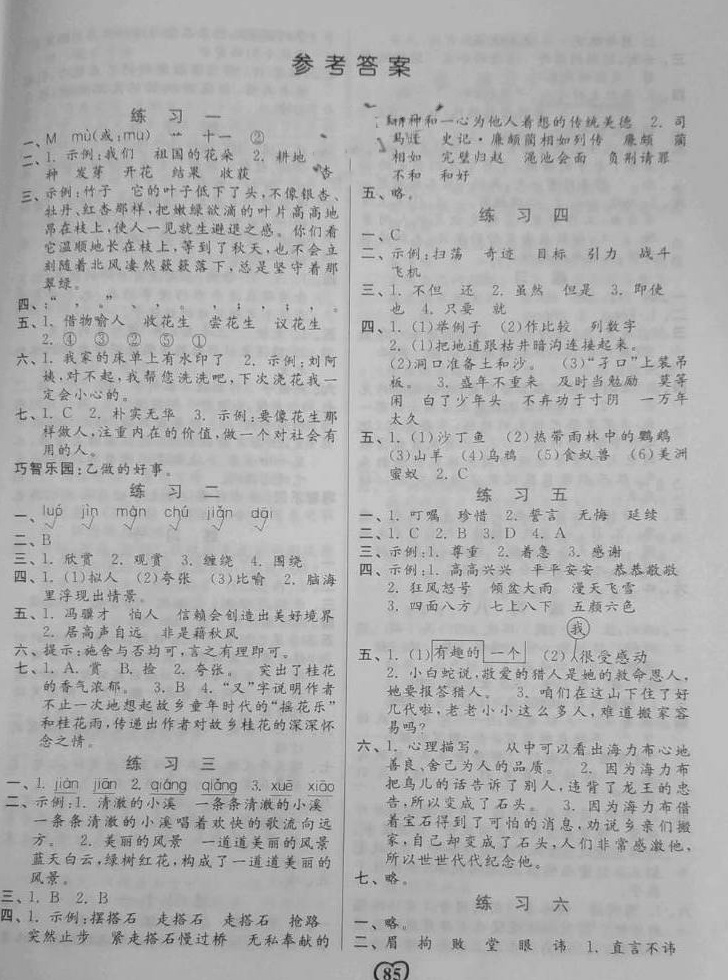 参考答案
练习一
一、M mù(或:mu) 艹 十一 ②
二、1. 示例:我们 祖国的花朵 2. 耕地
种 发芽 开花 结果 收获 杏
三、示例:竹子 它的叶子低下了头,不像银杏、
牡丹、红杏那样,把嫩绿欲滴的叶片高高地
昂在枝上,使人一见就生避退之感。你们看
它温顺地长在枝上,等到了秋天,也不会立
刻随着北风凄然簌簌落下,总是坚守着那
翠绿。
四、:“ , 。” 、 , 。 , ; , ; , 。
五、1. 借物喻人 收花生 尝花生 议花生
2. ④ ③ ② ⑤ ①
六、1. 我家的床单上有水印了 2. 示例:刘阿
姨,对不起,我帮您洗洗吧,下次浇花我一
定会小心的。
七、1. C 2. 朴实无华 3. 示例:要像花生那
样做人,注重内在的价值,做一个对社会有
用的人。
巧智乐园:乙做的好事。
练习二
一、luó jìn màn chú jiǎn dāi
二、B
三、1. 欣赏 2. 观赏 3. 缠绕 4. 围绕
四、1. (1)拟人 (2)夸张 (3)比喻 2. 脑海
里浮现出情景。
五、1. 冯骥才 怕人 信赖会创造出美好境界
2. 居高声自远 非是藉秋风
六、提示:施舍与否均可,言之有理即可。
七、1. A. 赏 B. 捡 2. 夸张。 突出了桂花
的香气浓郁。 3. B 4. “又”字说明作者
不止一次地想起故乡童年时代的“摇花乐”
和桂花雨,传递出作者对故乡桂花的深深怀
念之情。
练习三
一、1. jiàn jiān 2. qiáng qiǎng 3. xuē xiāo
二、示例:1. 清澈的小溪 一条条清澈的小溪
一条条清澈的小溪唱着欢快的歌流向远
方。 2. 美丽的风景 一道道美丽的风景
蓝天白云,绿树红花,构成了一道道美丽的
风景。
三、1. B 2. B
四、1. 示例:摆搭石 走搭石 走搭石 抢路
突然止步 紧走搭石慢过桥 无私奉献的
精神和一心为他人着想的传统美德 2. 司
马迁 史记·廉颇蔺相如列传 廉颇 蔺
相如 完璧归赵 渑池会面 负荆请罪
不和 和好
五、略。
练习四
一、C
二、示例:扫荡 奇迹 目标 引力 战斗
飞机
三、1. 不但 还 2. 虽然 但是 3. 即使
也 4. 只要 就
四、1. (1)举例子 (2)作比较 列数字
2. (1)把地道跟枯井暗沟连接起来。
(2)洞口准备土和沙。 (3)“孑口”上装吊
板。 3. 盛年不重来 及时当勉励 莫等
闲 白了少年头 不弃功于寸阴 一万年
太久
五、1. (1)沙丁鱼 (2)热带雨林中的鹦鹉
(3)山羊 (4)乌鸦 (5)食蚁兽 (6)美洲
蜜蚁 2. C
练习五
一、1. 叮嘱 珍惜 2. 誓言 无悔 延续
二、1. C 2. B 3. D 4. A
三、示例:1. 尊重 2. 着急 3. 感谢
四、示例:1. 高高兴兴 平平安安 恭恭敬敬
2. 狂风怒号 倾盆大雨 漫天飞雪
3. 四面八方 七上八下 五颜六色
我
五、1. (1)有趣的 一个 (2) 很受感动
2. 小白蛇说,敬爱的猎人是她的救命恩人,
她要报答猎人。 3. 咱们在这山下住了好
几代啦,老老小小这么多人,难道搬家容
易吗?
六、1. 心理描写。 从中可以看出海力布心地
善良、舍己为人的品质。 2. 因为海力布
把鸟儿的话告诉了别人,违背了龙王的忠
告,所以变成了石头。 3. 因为海力布借
着宝石得到了可怕的消息,劝说乡亲们搬
家,自己却变成了石头,人们非常感激他,
所以世世代代纪念他。
七、略。
练习六
一、略。
二、眉 拘 败 堂 眼 讳 1. 直言不讳
85